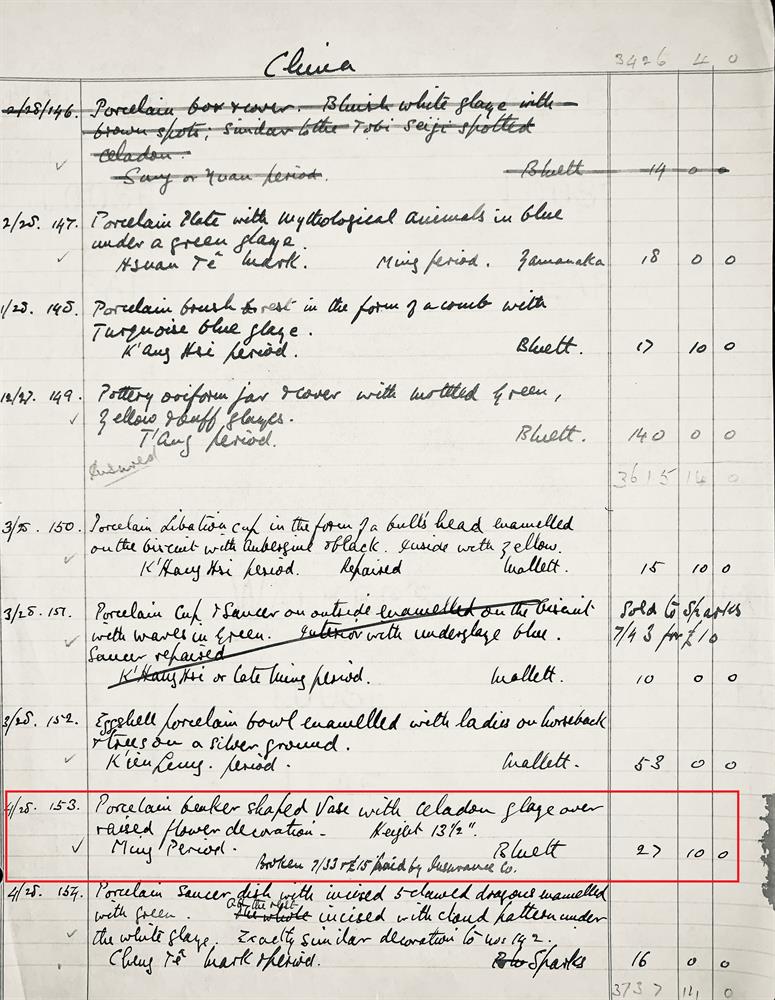 China 3426 4 0
2/28/146. Porcelain box & cover. Bluish white glaze with
brown spots; similar to the Tobi Seiji spotted
celadon.
Sung or Yuan period. Bluett 14 0 0
2/28. 147. Porcelain Plate with mythological animals in blue
under a green glaze.
Hsuan Tê Mark. Ming period. Yamanaka 18 0 0
1/28. 148. Porcelain brush rest in the form of a comb with
Turquoise blue glaze.
K'Ang Hsi period. Bluett. 17 10 0
12/27. 149. Pottery oviform jar & cover with mottled Green,
Yellow & buff glazes.
T'Ang period. Bluett. 140 0 0
Insured 3615 14 0
3/28. 150. Porcelain Libation cup in the form of a bull's head enamelled
on the biscuit with Aubergine & black. Inside with Yellow.
K'Hang Hsi period. Repaired Mallett. 15 10 0
3/28. 151. Porcelain Cup & Saucer on outside enamelled on the biscuit Sold to Sparks
with waves in Green. Interior with underglaze blue. 7/43 for £10
Saucer repaired
K'Hang Hsi or late Ming period. Mallett. 10 0 0
3/28. 152. Eggshell porcelain bowl enamelled with ladies on horseback
& trees on a silver ground.
K'ien Lung. period. Mallett. 53 0 0
4/28. 153. Porcelain beaker shaped Vase with Celadon glaze over
raised flower decoration - Height 13½".
Ming Period. Bluett 27 10 0
Broken 7/33 & £15 paid by Insurance Co.
4/28. 154. Porcelain Saucer dish with incised 5 clawed dragons enamelled
with green. All the rest The whole incised with cloud pattern under
the white glaze. Exactly similar decoration to nos 142.
Cheng Tê Mark & period. Sparks 16 0 0
3737 14 0